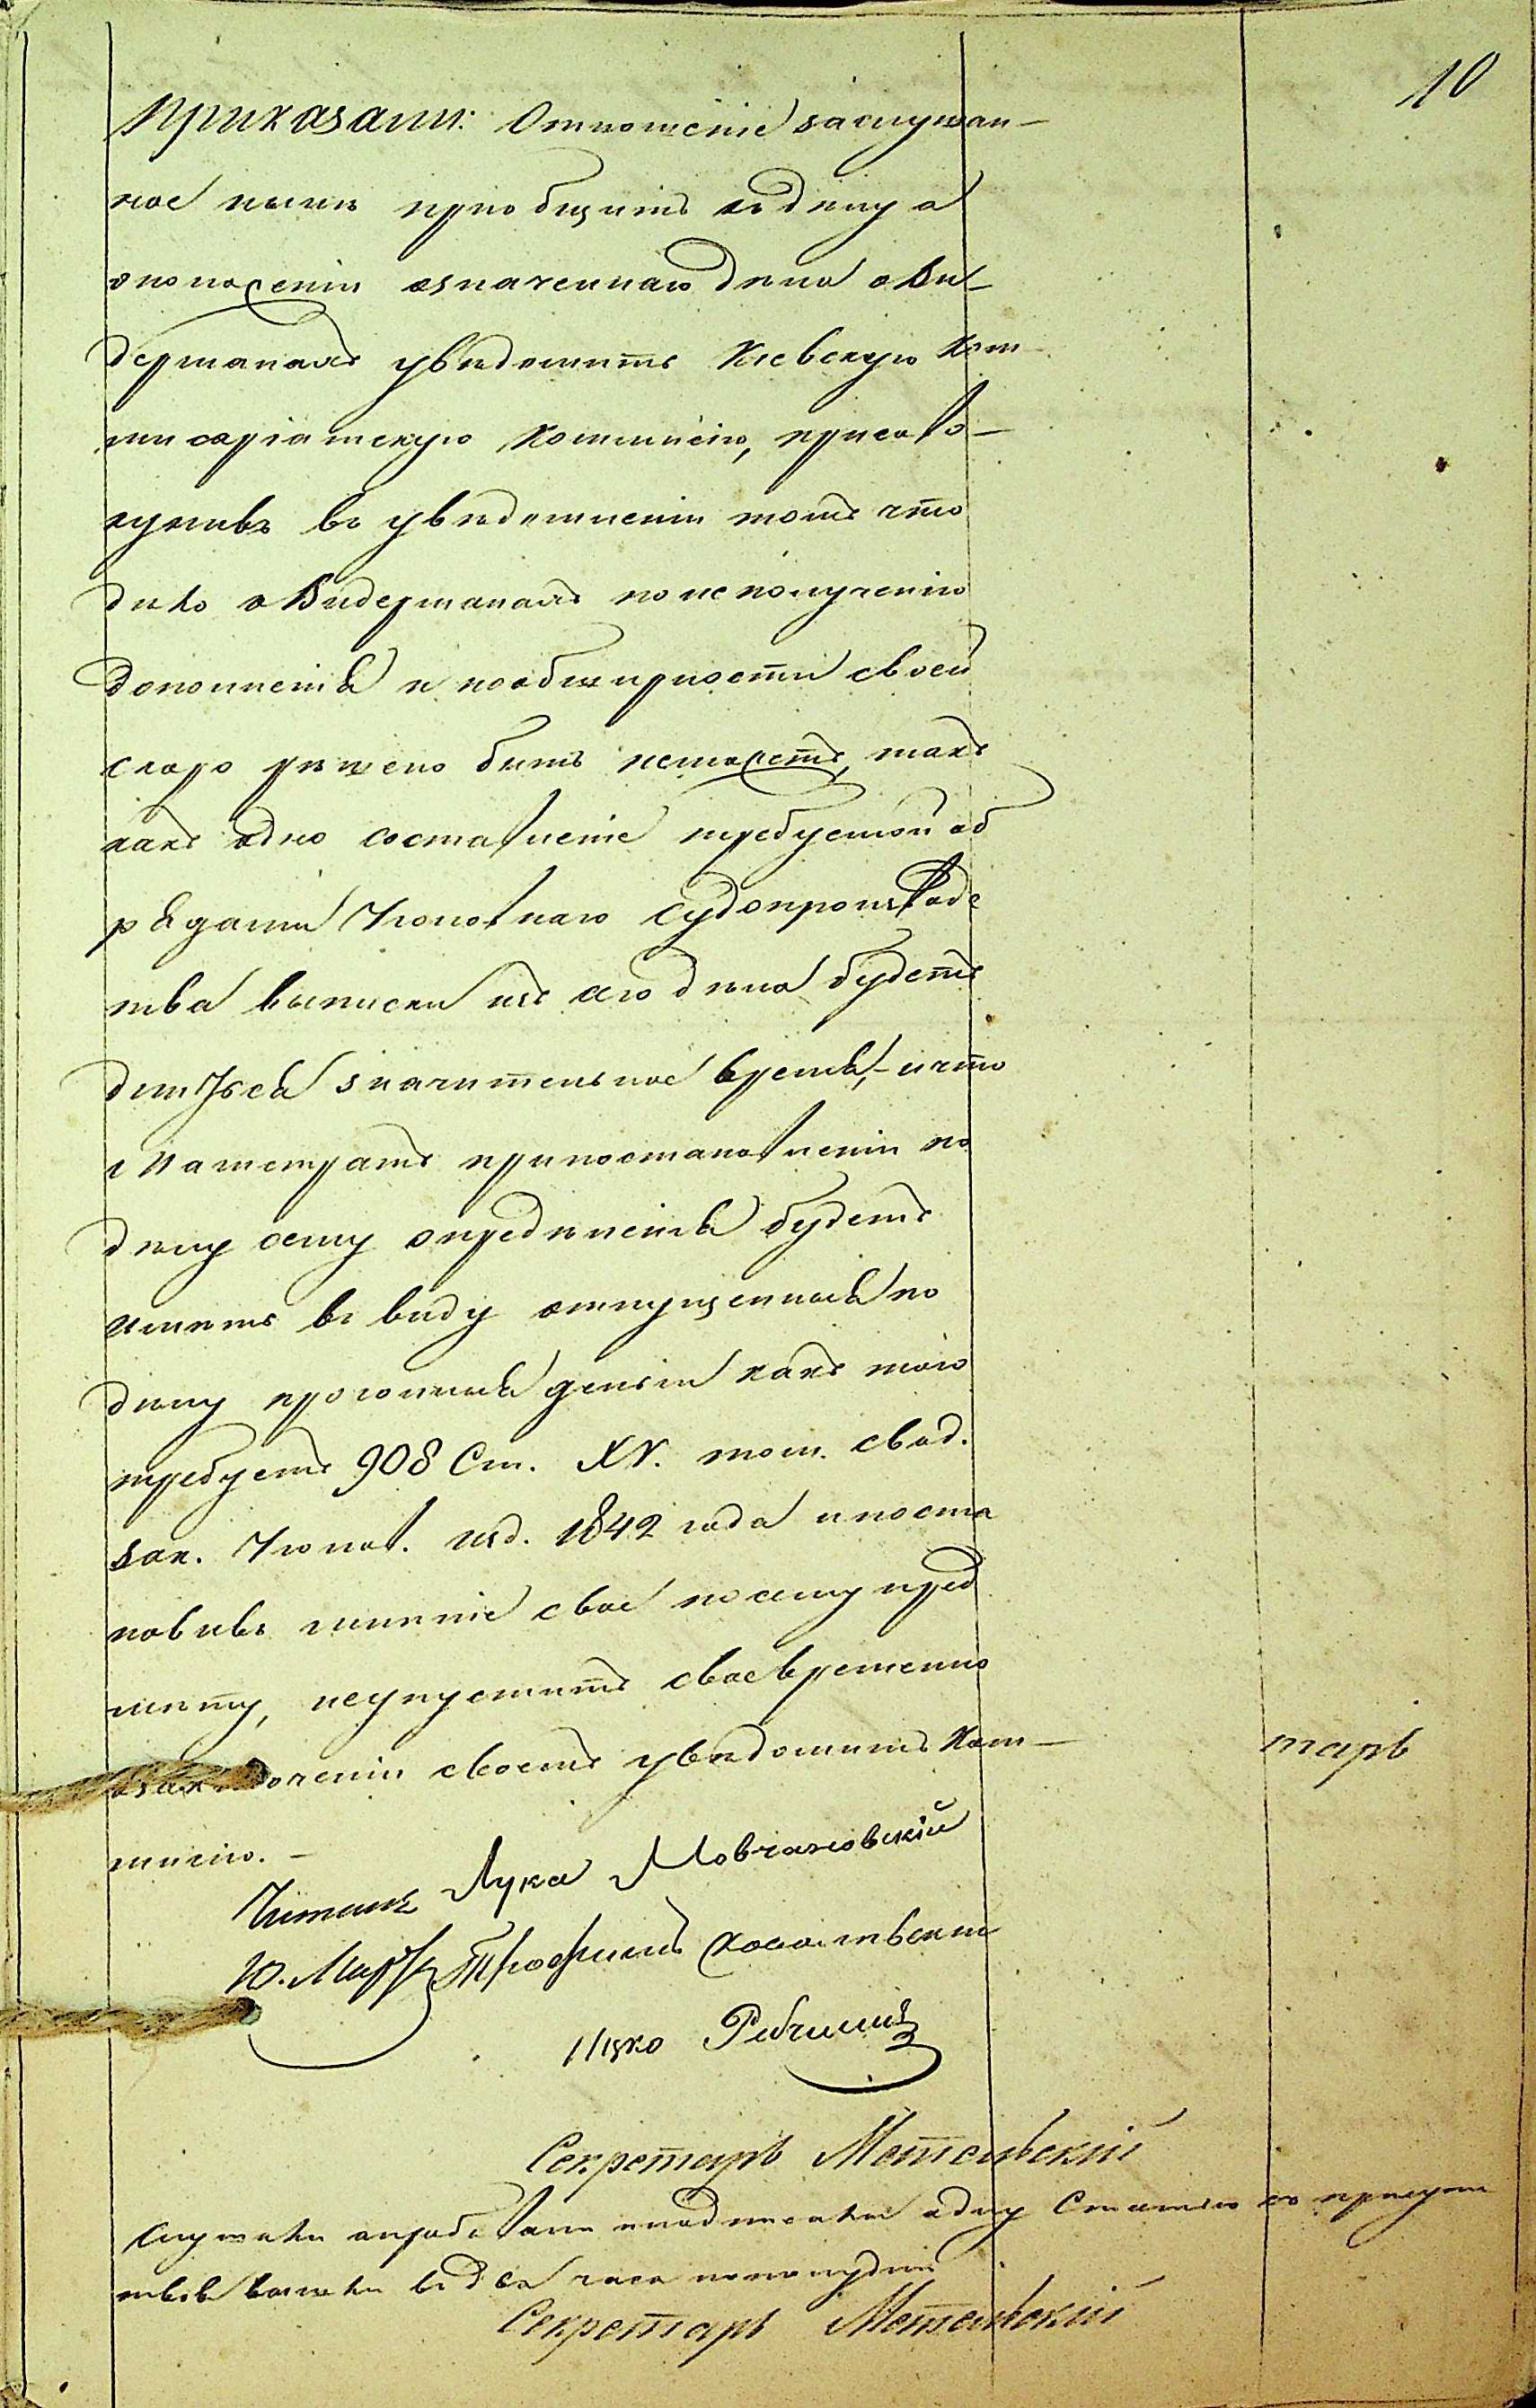 10
Приказали: Отношеніе заслушан-
ное нынѣ приобщить къ дѣлу а
о положеніи означеннаго дѣла о Ви-
дерманахъ увѣдомить Кіевскую Ком-
мисаріатскую Коммисію, присово-
купивъ въ увѣдомленіи томъ что
дѣло о Видерманахъ по неполученію
дополненія и по обширности своей
скоро рѣшено быть неможетъ, такъ
какъ одно составленіе требуемой об
рядами Уголовнаго Судопроизводс
тва выписки изъ сего дѣла будетъ
длиться значительное время, - и что
Магистратъ при постановленіи по
дѣлу сему опредѣленія будетъ
имѣть въ виду отпущенныя по
дѣлу прогонныя деньги какъ того
требуетъ 908 Ст. XV. том. свод.
зак. Уголов. изд. 1842 года и поста
новивъ мнѣніе свое по сему пред
мѣту, неупуститъ своевременно
о заключеніи своемъ увѣдомить Ком-
тарь
мисію. -
Читалъ Лука Мовчановскій
Трофимъ
Ицко
Секретарь Метельскій
Слушали и подписали одну Статью
вышли въ два часа пополудни
Секретарь Метельскій